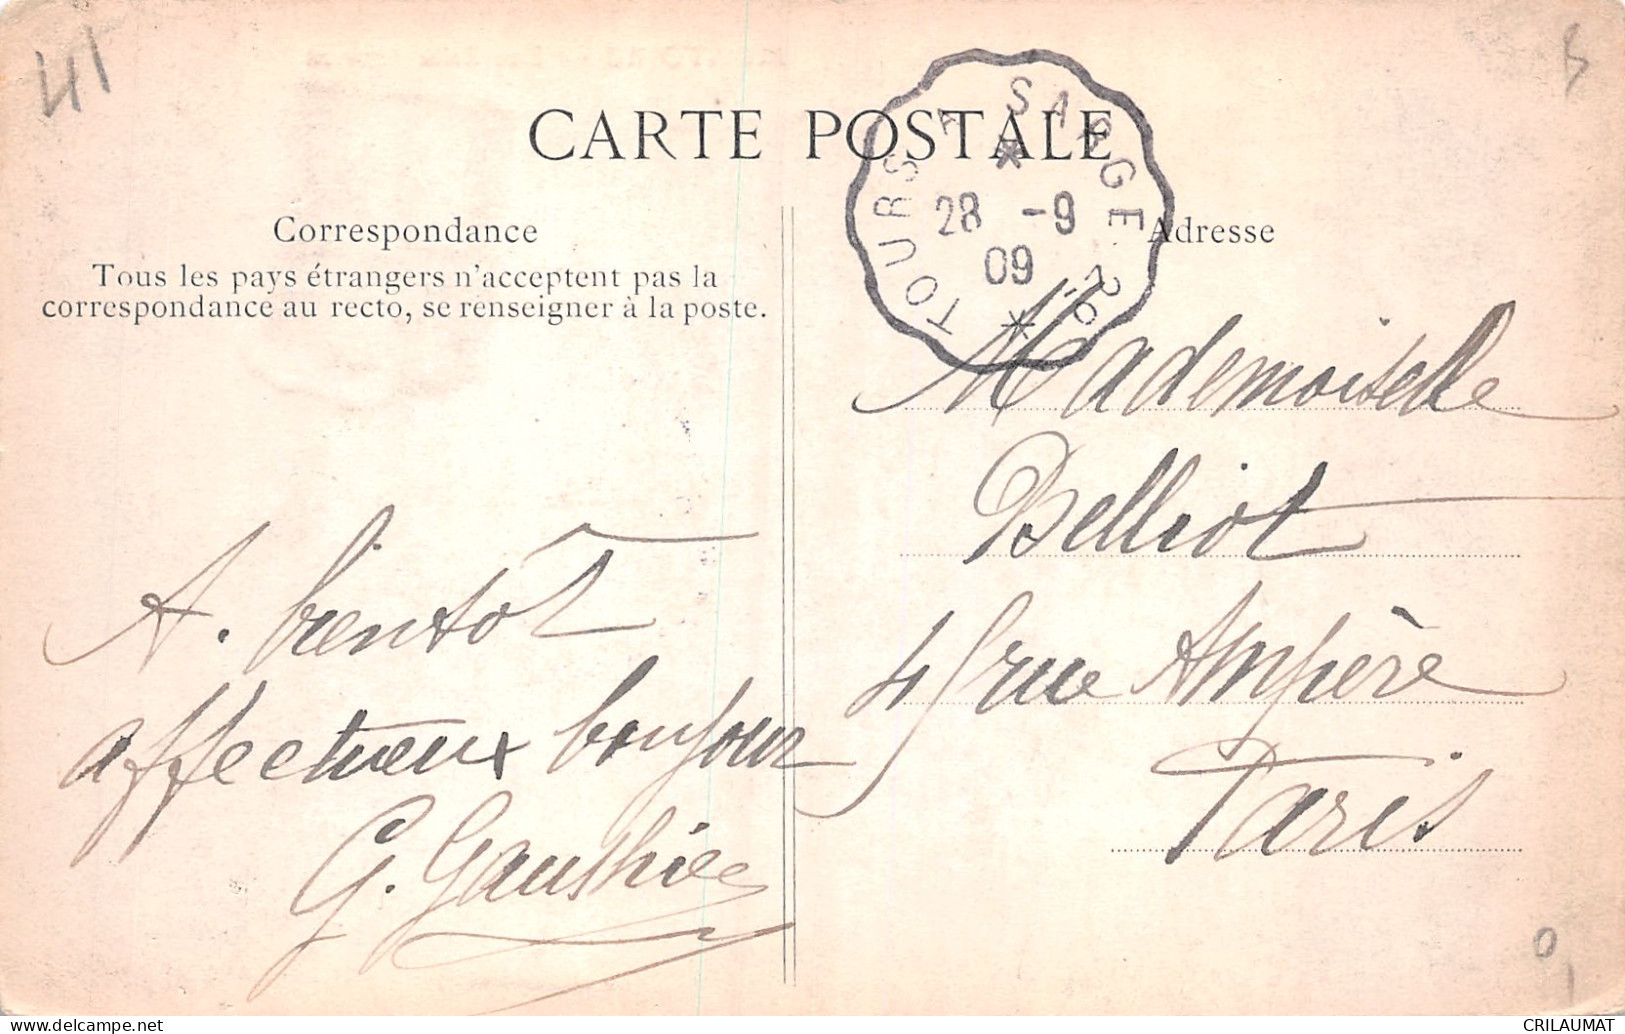 41
CARTE POSTALE
TOURS A SARGE 2°
28 -9
09
Correspondance
Tous les pays étrangers n'acceptent pas la
correspondance au recto, se renseigner à la poste.
A. bientôt
affectueux bonjour
G. Gauthier
Adresse
Mademoiselle
Belliot
45 rue Ampère
Paris
CRILAUMAT